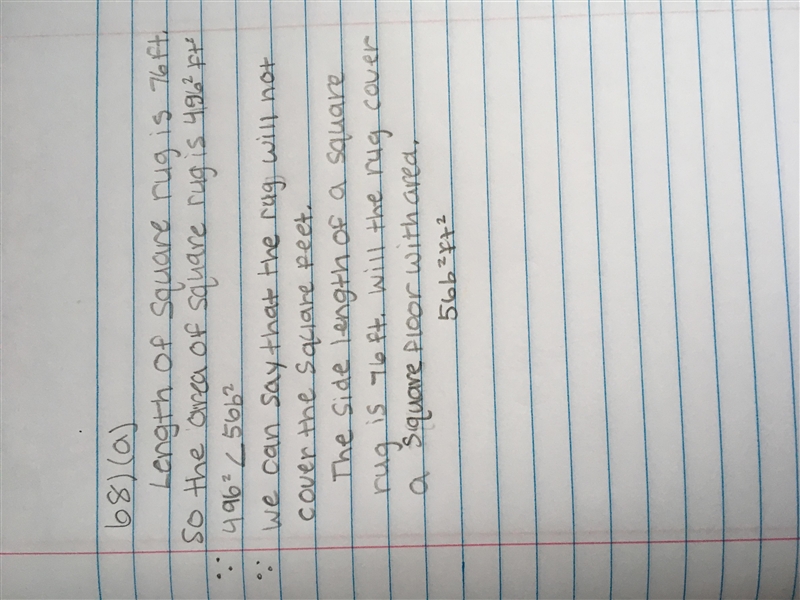 68)(a)
Length of square rug is 7b ft.
So the area of square rug is 49b² ft²
∵ 49b² < 56b²
∴ We can say that the rug will not
cover the square feet.
The side length of a square
rug is 7b ft. Will the rug cover
a square floor with area.
56b² ft²